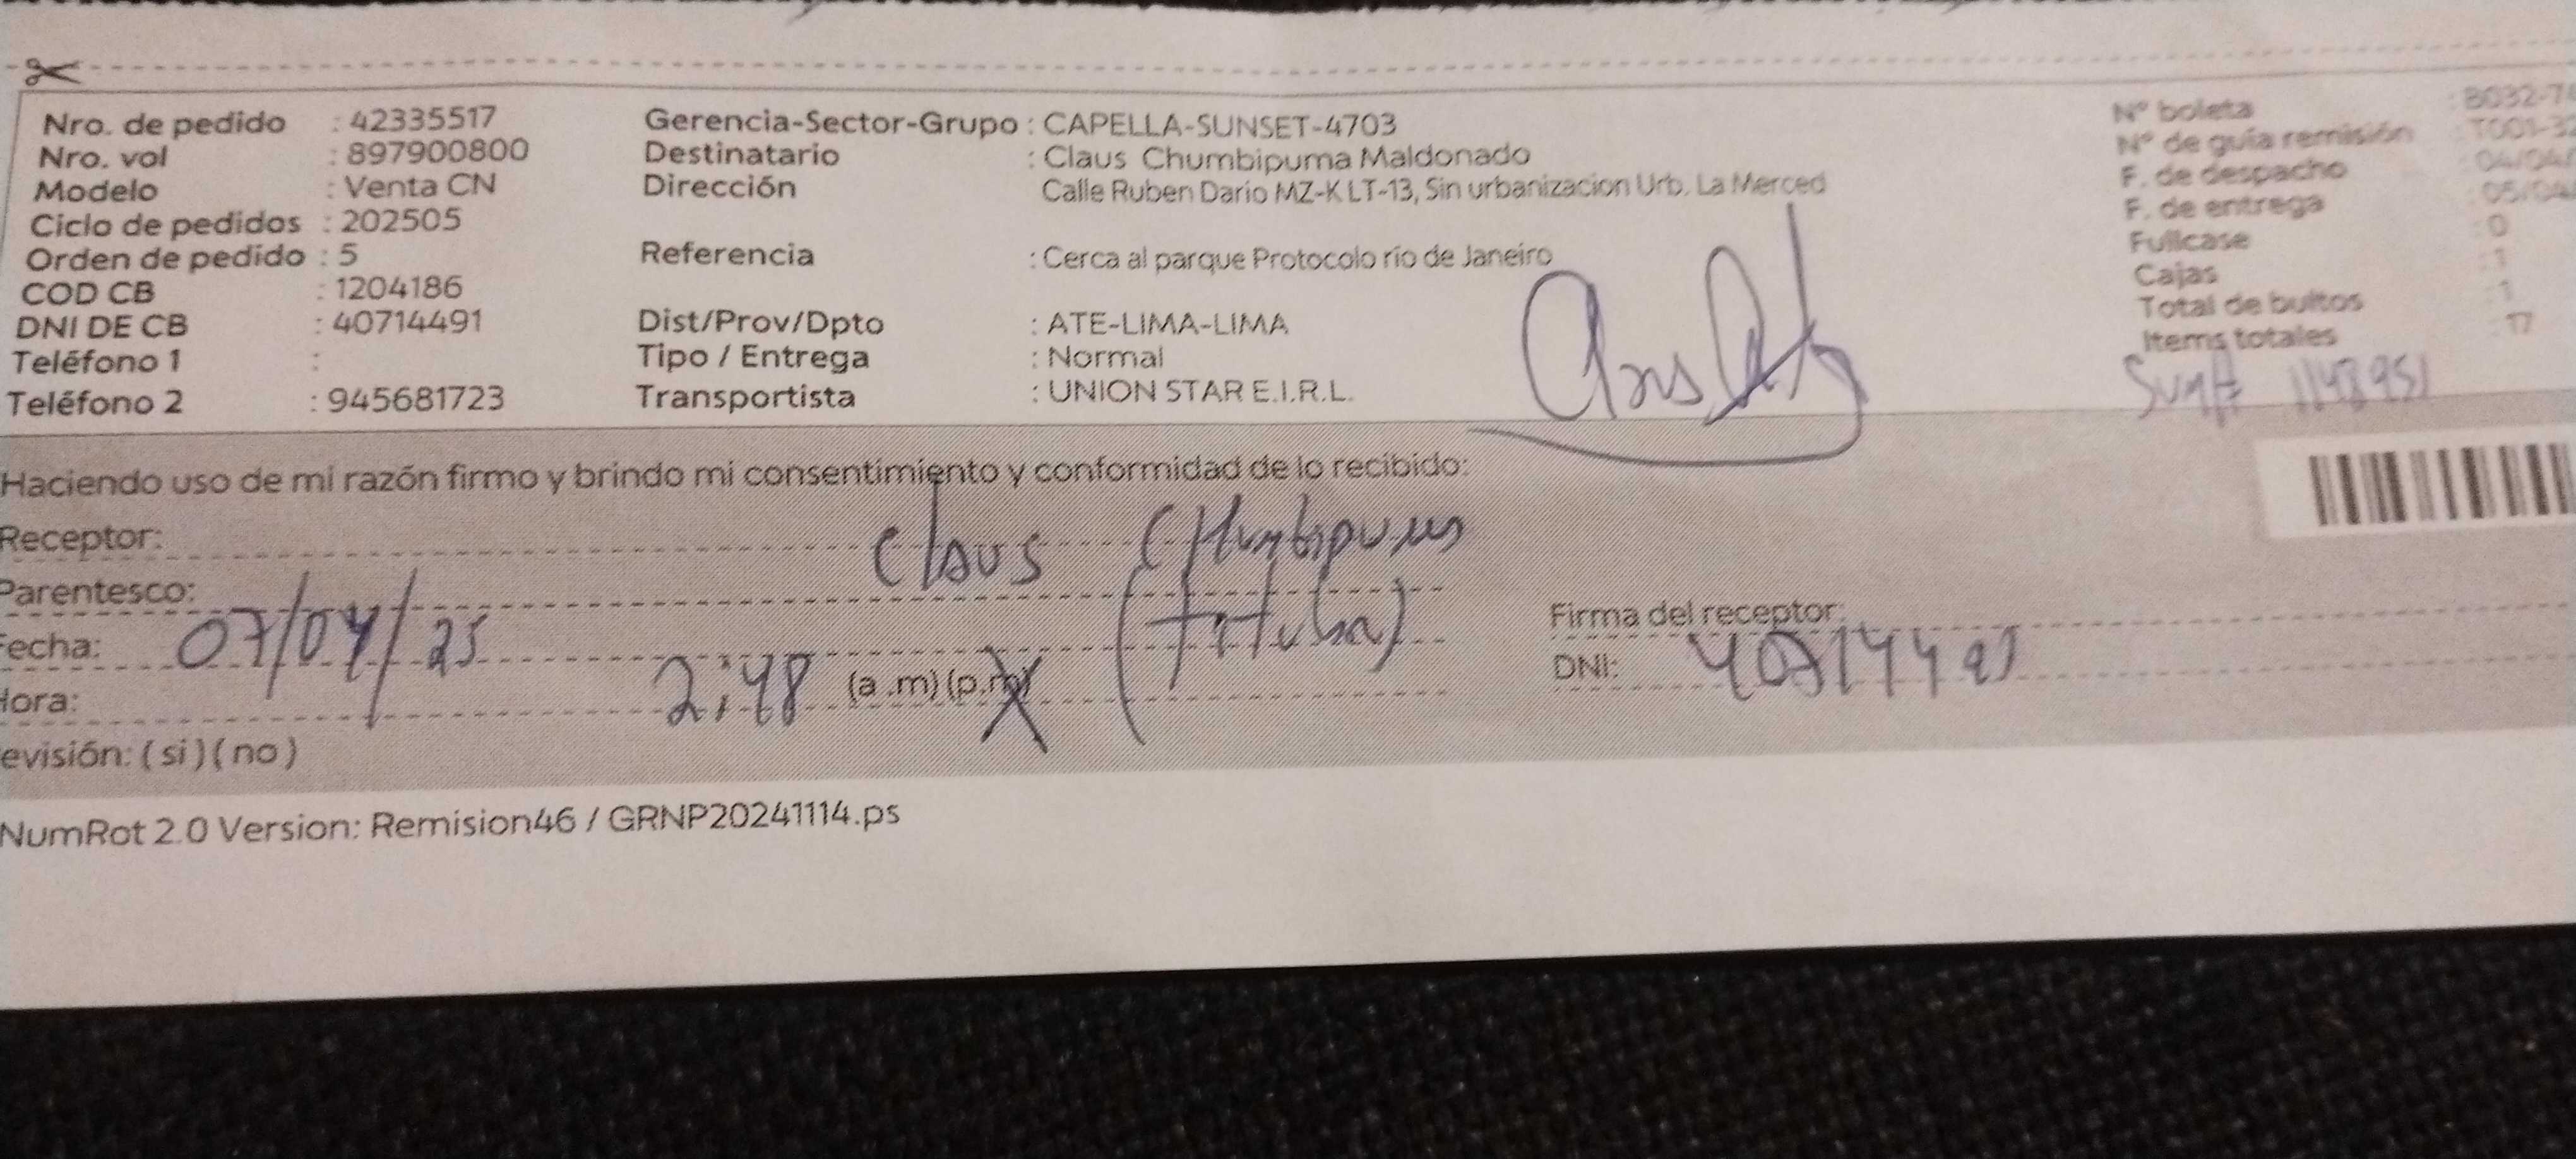 Nro. de pedido : 42335517 Gerencia-Sector-Grupo : CAPELLA-SUNSET-4703 Nº boleta : B032-7
Nro. vol : 897900800 Destinatario : Claus Chumbipuma Maldonado Nº de guía remisión : T001-3
Modelo : Venta CN Dirección Calle Ruben Dario MZ-K LT-13, Sin urbanizacion Urb. La Merced F. de despacho : 04/04/
Ciclo de pedidos : 202505 F. de entrega : 05/04/
Orden de pedido : 5 Referencia : Cerca al parque Protocolo rio de Janeiro Fullcase : 0
COD CB : 1204186 Cajas : 1
DNI DE CB : 40714491 Dist/Prov/Dpto : ATE-LIMA-LIMA Total de bultos : 1
Teléfono 1 : Tipo / Entrega : Normal Items totales : 17
Teléfono 2 : 945681723 Transportista : UNION STAR E.I.R.L. 1148951
Haciendo uso de mi razón firmo y brindo mi consentimiento y conformidad de lo recibido:
Receptor: Claus CHumbipuma
Parentesco: (titular)
echa: 07/04/25 Firma del receptor:
Hora: 2:48 (a.m) (p.m) X DNI: 40714491
evisión: ( si ) ( no )
NumRot 2.0 Version: Remision46 / GRNP20241114.ps